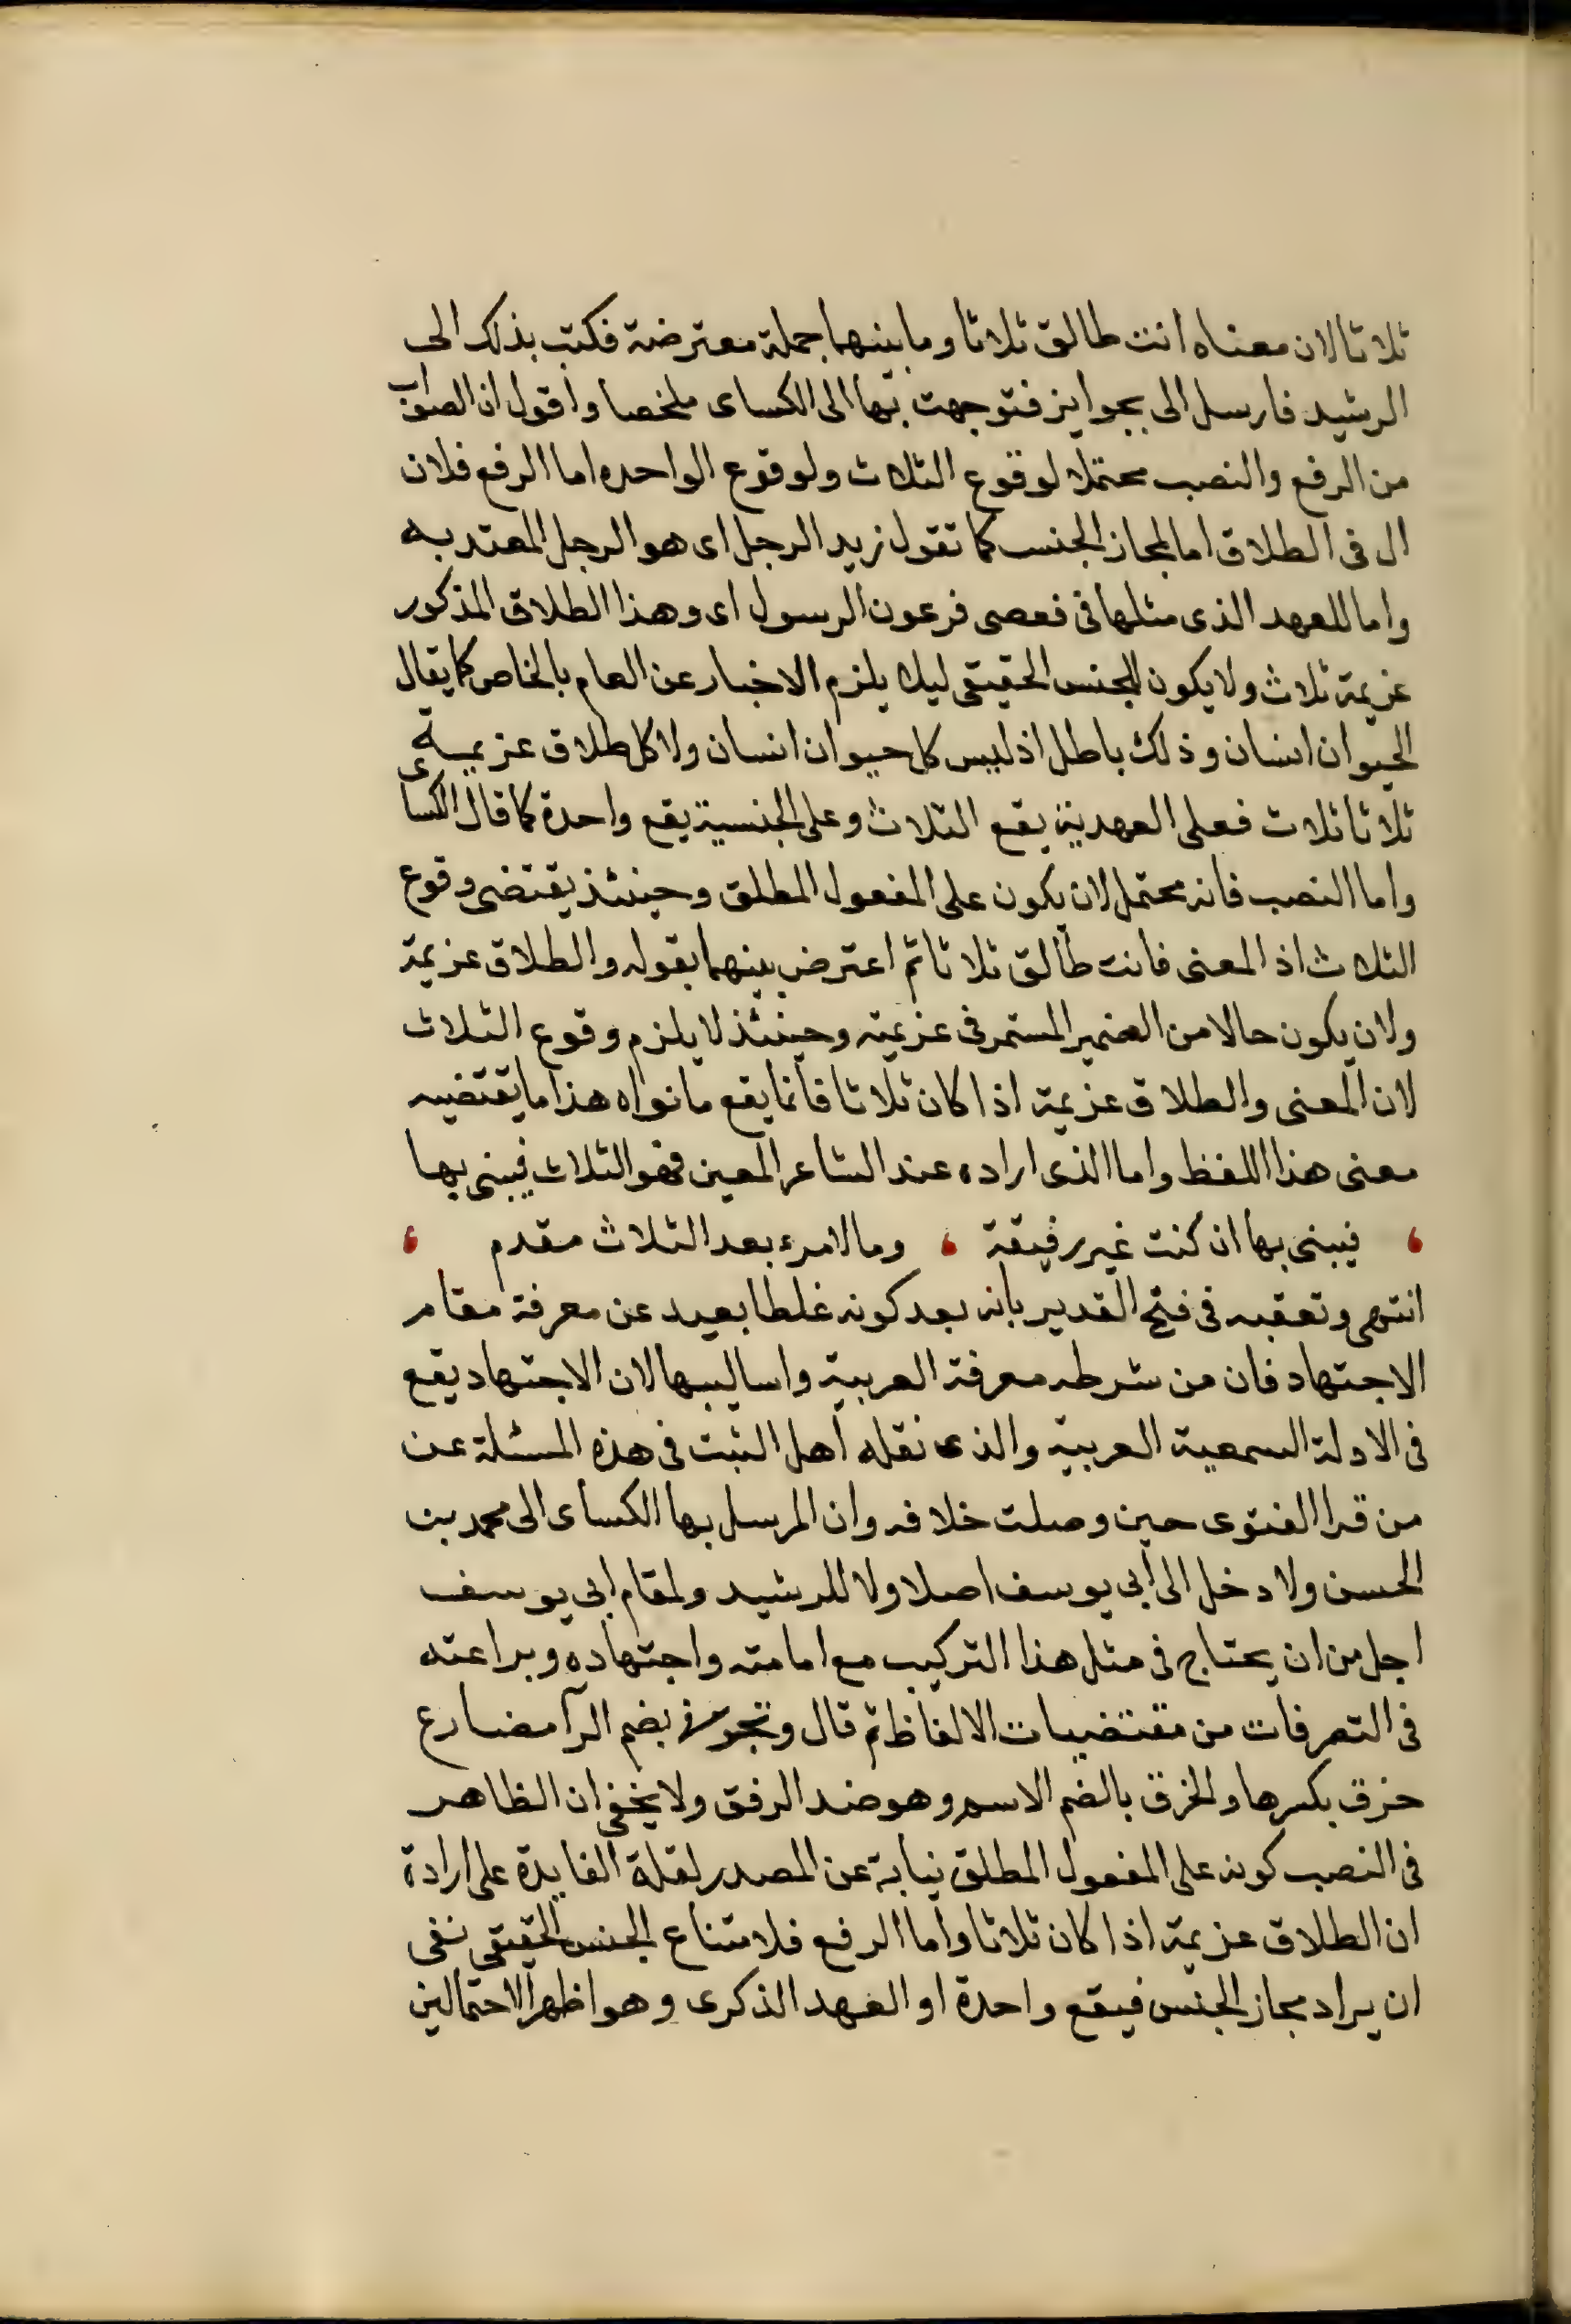 ثلاثا لان معناه انت طالق ثلاثا وما بينهما جملة معترضة فكتب بذلك الى
الرشيد فارسل الى بجوايز فتوجهت بها الى الكساى ملخصا واقول ان الصواب
من الرفع والنصب محتملا لوقوع الثلاث ولوقوع الواحده اما الرفع فلان
ال فى الطلاق اما لمجاز الجنس كما تقول زيد الرجل اى هو الرجل المعتد به
واما للعهد الذى مثلها فى فعصى فرعون الرسول اى وهذا الطلاق المذكور
عزيمة ثلاث ولا يكون للجنس الحقيقى ليلا يلزم الاخبار عن العام بالخاص كما يقال
الحيوان انسان وذلك باطل اذ ليس كل حيوان انسان ولا كل طلاق عزيمة
ثلاثا ثلاث فعلى العهدية يقع الثلاث وعلى الجنسية يقع واحدة كما قال الكساى
واما النصب فانه محتمل لان يكون على المفعول المطلق وحينئذ يقتضى وقوع
الثلاث اذ المعنى فانت طالق ثلاثا ثم اعترض بينهما بقوله والطلاق عزيمة
ولان يكون حالا من الضمير المستمر فى عزيمة وحينئذ لا يلزم وقوع الثلاث
لان المعنى والطلاق عزيمة اذا كان ثلاثا فانما يقع ما نواه هذا ما يقتضيه
معنى هذا اللفظ واما الذى اراده عند الشاعر المعين فهو الثلاث فيبنى بها
، فيبنى بها ان كنت غير رفيقة ، وما لامرء بعد الثلاث مقدم ،
انتهى وتعقبه فى فتح القدير بانه بعد كونه غلطا بعيد عن معرفة مقام
الاجتهاد فان من شرطه معرفة العربية واساليبها لان الاجتهاد يقع
فى الادلة السمعية العربية والذى نقله اهل الثبت فى هذه المسئلة عن
من قرا الفتوى حين وصلت خلافه وان المرسل بها الكساى الى محمد بن
الحسن ولا دخل الى ابى يوسف اصلا ولا للرشيد ولمقام ابى يوسف
اجل من ان يحتاج فى مثل هذا التركيب مع امامته واجتهاده وبراعته
فى التصرفات من مقتضيات الالفاظ ثم قال وتخرق بضم الرآ مضارع
خرق بكسرها والخرق بالضم الاسم وهو ضد الرفق ولا يخفى ان الظاهر
فى النصب كونه على المفعول المطلق نيابة عن المصدر لقلة الفايدة على ارادة
ان الطلاق عزيمة اذا كان ثلاثا واما الرفع فلامتناع الجنس الحقيقى نفى
ان يراد مجاز الجنس فيقع واحدة او العهد الذكرى وهو اظهر الاحتمالين